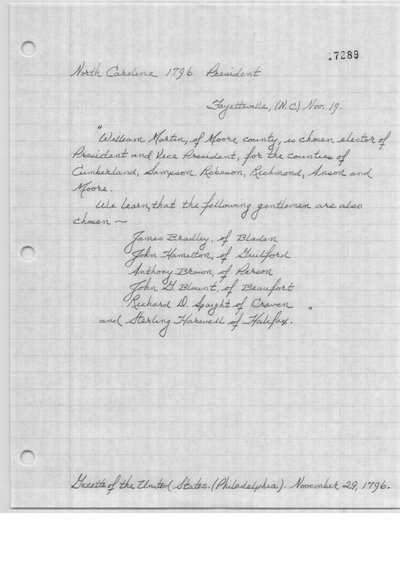 17289
North Carolina 1796 President
Fayetteville, (N.C.) Nov. 19.
"William Martin, of Moore county, is chosen elector of
President and Vice President, for the counties of
Cumberland, Sampson, Robeson, Richmond, Anson and
Moore.
We learn that the following gentlemen are also
chosen —
James Bradley, of Bladen
John Hamilton, of Guilford
Anthony Brown, of Person
John G. Blount, of Beaufort
Richard D. Spaight of Craven
and Sterling Harwell of Halifax."
Gazette of the United States. (Philadelphia). November 29, 1796.